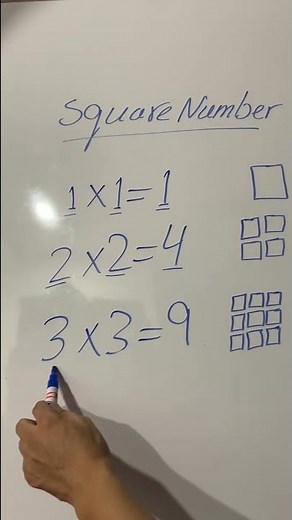 Square Number
1×1=1
2×2=4
3×3=9